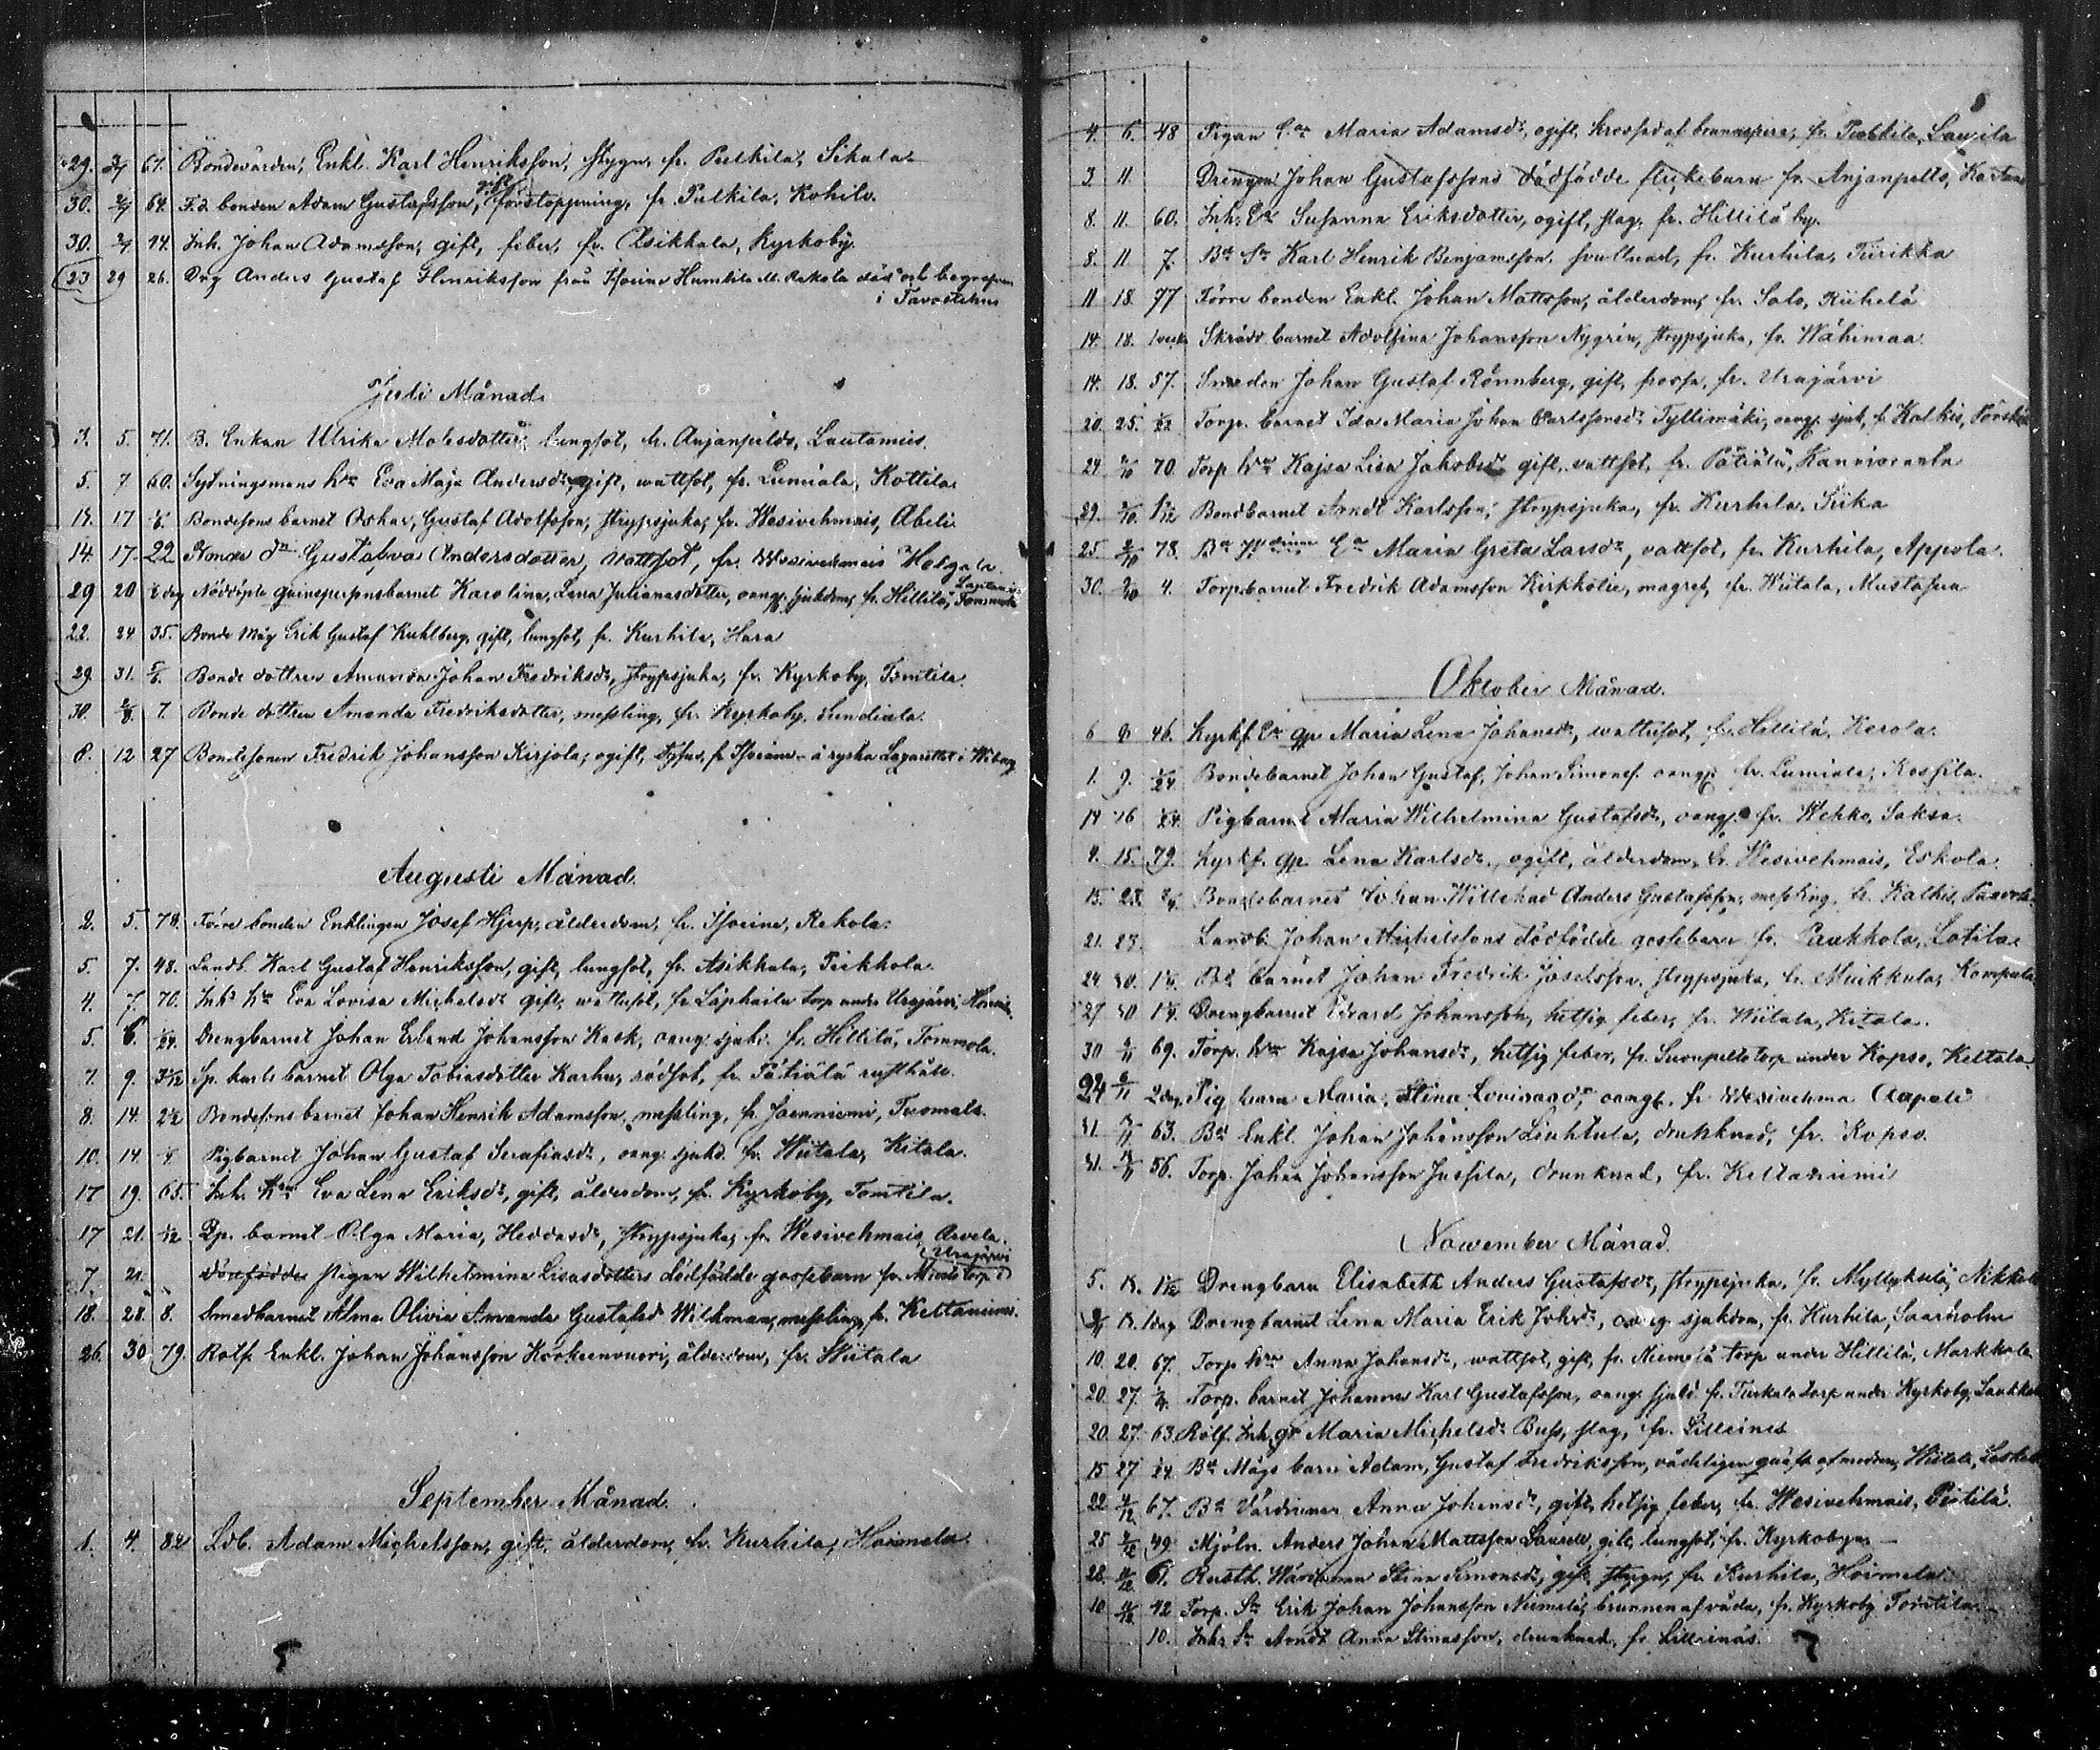 29. 3/7 67. Bondevärden, Enkl. Karl Henriksson, stygn, fr. Pulkila, Sikala.
30. 2/7 64. F.d. bonden Adam Gustafsson, gift, förstoppning, fr. Pulkila, Kohila.
30. 2/7 74. Inh. Johan Adamsson, gift, feber, fr. Asikkala, Kyrkoby.
23 29 26. Drg Anders Gustaf Henriksson från Isoeine Humkila ell. Rekola död och begrafven
i Tavastehus
Juli Månad.
3. 5. 71. B. Enkan Ulrika Matsdotter, lungsot, fr. Anjanpelto, Lautamies.
5. 7 60. Sytningsmans hu Eva Maja Andersdr, gift, wattsot, fr. Lumiala, Kottila.
14. 17 Bondesons barnet Oskar, Gustaf Adolfsson, strypsjuka, fr. Wesivehmais, Abeli.
14. 17 22 Bonde dr Gustafva Andersdotter, Vattsot, fr. Wesivehmais Helgala.
29 20 dag Nöddöpte qvinspersonsbarnet Karolina, Lena Julianasdotter, oang. sjukdom, fr. Hillilä, Tommola
22. 24 35. Bonde måg Erik Gustaf Kuhlberg, gift, lungsot, fr. Kurhila, Hara
29 31. 5/6. Bonde dottren Amanda Johan Fredriksdr, strypsjuka, fr. Kyrkoby, Tomtila.
30. 2/8. 7. Bonde dottren Amanda Fredriksdotter, messling, fr. Kyrkoby, Sundiala.
8. 12 27 Bondesonen Fredrik Johansson Kirjola, ogift, tyfus, fr. Isoeine - å ryska Lazarettet i Wiborg
Augusti Månad.
2. 5. 78. Förre bonden Enklingen Josef Hjerp, ålderdom, fr. Isoeine, Rekola.
5. 7. 48. Landb. Karl Gustaf Henriksson, gift, lungsot, fr. Asikkala, Pirkkola.
4. 7. 70. Inhs hu Eva Lovisa Michelsdr gift, wattusot, fr. torp under Urajärvi,
5. 6. 1/24. Drengbarnet Johan Erland Johansson Kask, oang. sjukd. fr. Hillilä, Tommola.
7. 9. 3 1/12 Sp. karls barnet Olga Tobiasdotter Karhu, rödsot, fr. Pätiälä rusthåll.
8. 14. 2 1/2 Bondesons barnet Johan Henrik Adamsson, messling, fr. Jaenniemi, Tuomala.
10. 14. Pigbarnet Johan Gustaf Serafiasdr, oang. sjukd. fr. Wiitala, Kitala.
17 19. 65. Inh. Hu Eva Lena Eriksdr, gift, ålderdom, fr. Kyrkoby, Tomtila.
17 21. 1/12 Qp. barnet Olga Maria, Heddasdr, strypsjuka, fr. Wesivehmais, Arvela.
7. 21. dödfödde pigan Wilhelmina Lisasdotters dödfödde gossebarn fr. torp Urajärvi
18. 28. 8. Smedbarnet Alma Olivia Amanda Gustafsdr Wilkman, messling, fr. Keltaniemi.
26. 30 79. Rotf. Enkl. Johan Johansson Korkeenvuori, ålderdom, fr. Wiitala
September Månad.
1. 4. 82 Ldb. Adam Michelsson, gift, ålderdom, fr. Kurhila, Hoimela.
4. 6. 48 Pigan Maria Adamsdr, ogift, krossad af brunnspira, fr. Purkkila, Lavila
3 11. Drengen Johan Gustafssons dödfödde flickebarn fr. Anjanpelto,
8. 11. 60. Inh. Susanna Eriksdotter, ogift, slag, fr. Hillilä by.
8. 11 7. Be Sn Karl Henrik Benjamsson, fr. Kurhila, Tiirikka
11 18. 77 Förre bonden Enkl. Johan Mattsson, ålderdom, fr. Salo, Riihelä
14. 18. Skrädd. barnet Adolfina Johansson Nygrén, strypsjuka, fr. Wähimaa.
14. 18. 57. Smeden Johan Gustaf Rönnberg, gift, frossa, fr. Urajärvi
20. 25. Torp. barnet Ida Maria Johan Carlssonsdr Tyllimäki, oang. sjuk. fr. Kalkis,
24. 2/10 70. Torp. hu Kajsa Lisa Jakobsdr gift, vattsot, fr. Pätiälä,
29. 2/10. 1 1/12 Bondbarnet Arndt Karlsson, strypsjuka, fr. Kurhila, Siika
25. 2/10 78. Maria Greta Larsdr, vattsot, fr. Kurhila, Appola.
30. 2/10 4. Torp.barnet Fredrik Adamsson Kirkkolin, magref, fr. Wiitala, Mustajua
Oktober Månad.
6 9 46. Kyrkf. qp. Maria Lena Johansdr, wattusot, fr. Hillilä, Kerola.
1. 9. 1/24 Bondebarnet Johan Gustaf, Johan Simonss. oang. fr. Lumiala, Kossila.
14 16 1/24. Pigbarnet Maria Wilhelmina Gustafsdr, oang. fr. Wehko, Saksa.
4. 15. 79. Kyrkf. qp. Lena Karlsdr., ogift, ålderdom, fr. Wesivehmais, Eskola.
15. 23. Bondebarnet Johan Willehad Anders Gustafsson, messling, fr. Kalkis, Paavola.
21. 23. Landb. Johan Michelssons dödfödde gossebarn fr. Pirkkola, Lotila
24 30. Be barnet Johan Fredrik Josefsson, strypsjuka, fr. Muikkula, Kompala
27 30 Drengbarnet Edvard Johansson, hetsig feber, fr. Wiitala, Kitala.
30 6/11 69. Torp. hu Kajsa Johansdr, hetsig feber, fr. Suonpelto torp under Kopso, Keltala.
24 6/11 2dag. Pig barn Maria, Stina Lovisasdr, oang. fr Wesivehma Aapeli
31 63. Be Enkl. Johan Johansson Liuhtula, drunknad, fr. Kopso.
31. 56. Torp. Johan Johansson Jussila, drunknad, fr. Keltaniemi
November Månad.
5. 13. 1 1/12 Drengbarn Elisabeth Anders Gustafsdr, strypsjuka, fr. Myllykselä, Nikkola
13. 1dag Drengbarnet Lena Maria Erik Johsdr, oang. sjukdom, fr. Kurhila, Saarholm
10. 20. 67. Torp hu Anna Johansdr, wattsot, gift, fr. Niemelä torp under Hillilä, Markkola
20. 27. Torp. barnet Johannes Karl Gustafsson, oang. sjukd. fr. Tuskala torp under Kyrkoby,
20. 27. 63 Rotf. Inh. qv. Maria Michelsdr Buss, slag, fr. Lilleinis
15 27 1/24. Be Mågs barn Adam, Gustaf Fredriksson, vådeligen qväft af modren, Wiitala,
22. 4/12 67. Be Värdinnan Anna Johansdr, gift, hetsig feber, fr. Wesivehmais, Pietilä.
25 2/12 49. Mjöln. Anders Johan Mattsson Laurell, gift, lungsot, fr. Kyrkobyn.
28. 4/12 61. Rusth. Wärdinna Stina Simonsdr, gift, stygn, fr. Kurhila, Hoimela.
10 4/12 42 Torp. Sn Erik Johan Johansson Niemelä, brunnen af våda, fr. Kyrkoby Tomtila.
10. Inhs Sn Arndt Anna Stinasson, drunknad, fr. Lilleinäs.